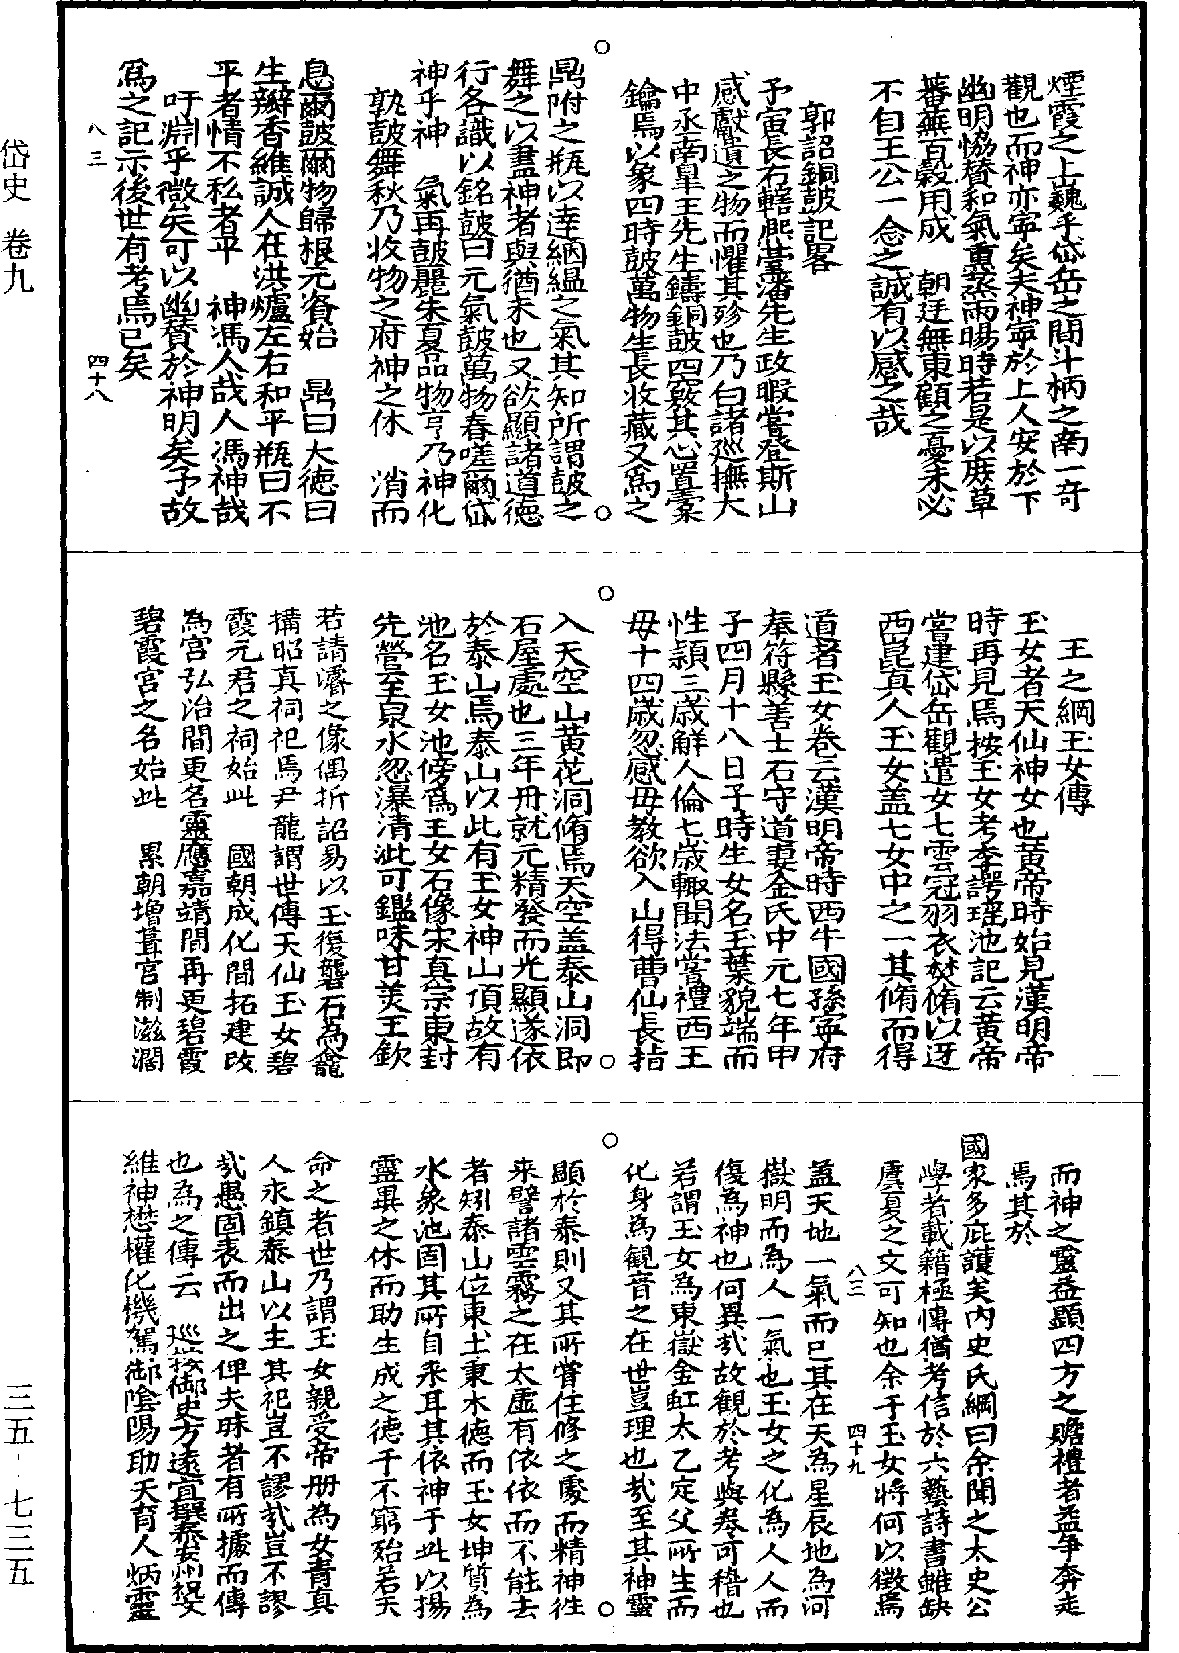 岱史 卷九
三五—七三五
煙霞之上巍乎岱岳之間斗柄之南一奇
觀也而神亦寧矣夫神寧於上人安於下
幽明協贊和氣熏蒸雨暘時若是以庶草
蕃蕪百穀用成 朝廷無東顧之憂未必
不自王公一念之誠有以感之哉
郭詔銅鼓記畧
予寅長右轄熙臺潘先生政暇嘗登斯山
感獻遺之物而懼其殄也乃白諸巡撫大
中丞南皐王先生鑄銅鼓四竅其心置橐
鑰焉以象四時鼓萬物生長收藏又爲之
鼎附之瓶以達絪縕之氣其知所謂鼓之
舞之以盡神者與猶未也又欲顯諸道德
行各識以銘鼓曰元氣鼓萬物春嗟爾岱
神乎神 氣再鼓麗朱夏品物亨乃神化
孰鼓舞秋乃收物之府神之休 消而
息爾鼓爾物歸根元資始 鼎曰大德曰
生瓣香維誠人在洪爐左右和平瓶曰不
平者情不私者平 神馮人哉人馮神哉
吁淵乎微矣可以幽贊於神明矣予故
爲之記示後世有考焉已矣
八三 四十八
王之綱玉女傳
玉女者天仙神女也黃帝時始見漢明帝
時再見焉按玉女考李諤瑤池記云黃帝
嘗建岱岳觀遣女七雲冠羽衣焚脩以迓
西崑真人玉女盖七女中之一其脩而得
道者玉女卷云漢明帝時西牛國孫寧府
奉符縣善士石守道妻金氏中元七年甲
子四月十八日子時生女名玉葉貌端而
性頴三歲解人倫七歲輙聞法嘗禮西王
母十四歲忽感母教欲入山得曹仙長指
入天空山黃花洞脩焉天空盖泰山洞即
石屋處也三年丹就元精發而光顯遂依
於泰山焉泰山以此有玉女神山頂故有
池名玉女池傍爲玉女石像宋真宗東封
先營至泉水忽瀑清泚可鑑味甘美王欽
若請濬之像偶折詔易以玉復礱石為龕
搆昭真祠祀焉尹龍謂世傳天仙玉女碧
霞元君之祠始此 國朝成化間拓建改
為宮弘治間更名靈應嘉靖間再更碧霞
碧霞宮之名始此 累朝增葺宮制滋濶
而神之靈益顯四方之贍禮者益爭奔走
焉其於
國家多庇護矣内史氏綱曰余聞之太史公
學者載籍極慱猶考信於六藝詩書雖缺
虞夏之文可知也余于玉女將何以徵焉
八三 四十九
盖天地一氣而已其在天為星辰地為河
嶽明而為人一氣也玉女之化為人人而
復為神也何異㢤故觀於考與卷可稽也
若謂玉女為東嶽金虹太乙定父所生而
化身為觀音之在世豈理也㢤至其神靈
顯於泰則又其所嘗住修之處而精神徃
来譬諸雲霧之在太虛有依依而不能去
者矧泰山位東土秉木德而玉女坤質為
水象池固其所自来耳其依神于此以揚
靈畢之休而助生成之德于不窮殆若天
命之者世乃謂玉女親受帝册為女青真
人永鎮泰山以主其祀豈不謬㢤豈不謬
㢤愚固表而出之俾夫昧者有所據而傳
也為之傳云 巡按御史方遠宜駐泰安州祝文
維神懋權化機駕御隂陽助天育人炳靈